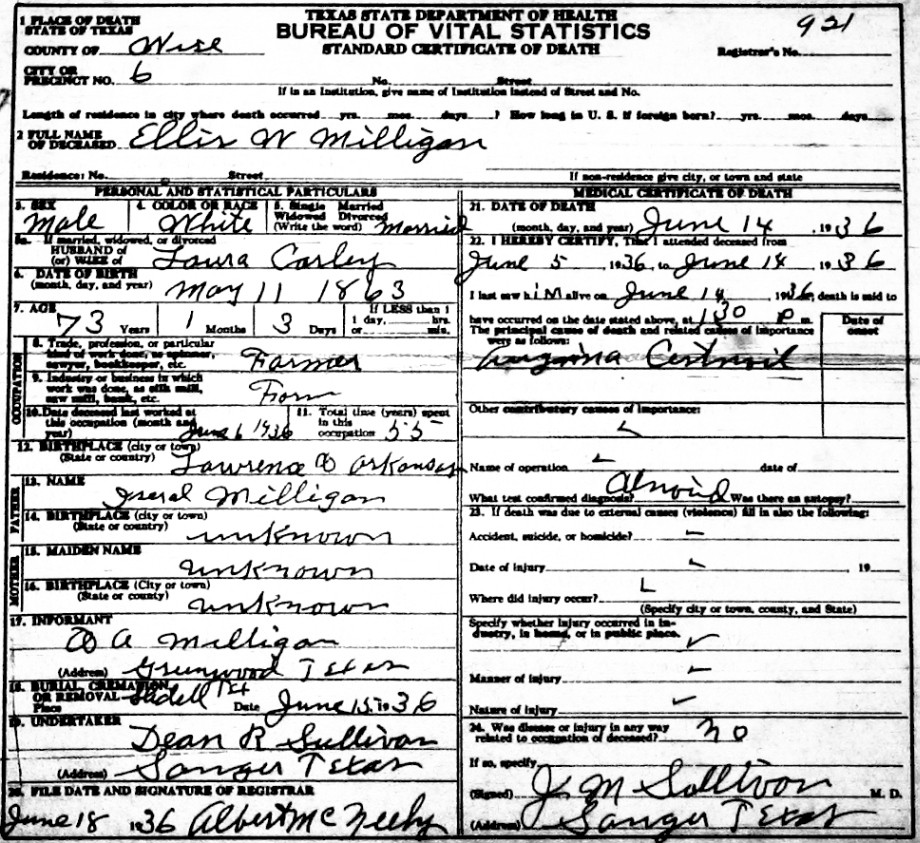 TEXAS STATE DEPARTMENT OF HEALTH
BUREAU OF VITAL STATISTICS
STANDARD CERTIFICATE OF DEATH
921
Registrar's No.
1 PLACE OF DEATH
STATE OF TEXAS
COUNTY OF Wise
CITY OR
PRECINCT NO. 6 No. Street
If in an Institution, give name of Institution instead of Street and No.
Length of residence in city where death occurred yrs. mos. days ? How long in U. S. if foreign born? yrs. mos. days
2 FULL NAME
OF DECEASED Ellis W Milligan
Residence: No. Street If non-residence give city, or town and state
PERSONAL AND STATISTICAL PARTICULARS
3. SEX Male
4. COLOR OR RACE White
5. Single Married
Widowed Divorced
(Write the word) Married
5a. If married, widowed, or divorced
HUSBAND of
(or) WIFE of Laura Carley
6. DATE OF BIRTH
(month, day, and year) May 11 1863
7. AGE 73 Years 1 Months 3 Days
If LESS than 1
1 day, hrs.
or min.
OCCUPATION
8. Trade, profession, or particular
kind of work done, as spinner,
sawyer, bookkeeper, etc. Farmer
9. Industry or business in which
work was done, as silk mill,
saw mill, bank, etc. Farm
10. Date deceased last worked at
this occupation (month and
year) June 6 1936
11. Total time (years) spent
in this
occupation 55
12. BIRTHPLACE (city or town)
(State or country) Lawrence Co Arkansas
FATHER
13. NAME Iseral Milligan
14. BIRTHPLACE (city or town)
(State or country) unknown
MOTHER
15. MAIDEN NAME unknown
16. BIRTHPLACE (City or town)
(State or country) unknown
17. INFORMANT
A Milligan
(Address) Greenwood Texas
18. BURIAL, CREMATION
OR REMOVAL
Place Slidell Tex Date June 15, 1936
19. UNDERTAKER
Dean R Sullivan
(Address) Sanger Texas
20. FILE DATE AND SIGNATURE OF REGISTRAR
June 18 1936 Albert McNeely
MEDICAL CERTIFICATE OF DEATH
21. DATE OF DEATH
(month, day, and year) June 14, 1936
22. I HEREBY CERTIFY, That I attended deceased from
June 5 1936, to June 14 1936
I last saw him alive on June 14 1936, death is said to
have occurred on the date stated above, at 1 30 P. m.
The principal cause of death and related causes of importance
were as follows:
Date of
onset
Other contributory causes of importance:
Name of operation date of
What test confirmed diagnosis? Was there an autopsy?
23. If death was due to external causes (violence) fill in also the following:
Accident, suicide, or homicide?
Date of injury 19
Where did injury occur?
(Specify city or town, county, and State)
Specify whether injury occurred in in-
dustry, in home, or in public place.
Manner of injury
Nature of injury
24. Was disease or injury in any way
related to occupation of deceased? no
If so, specify
(Signed) J M Sullivan M. D.
(Address) Sanger Texas